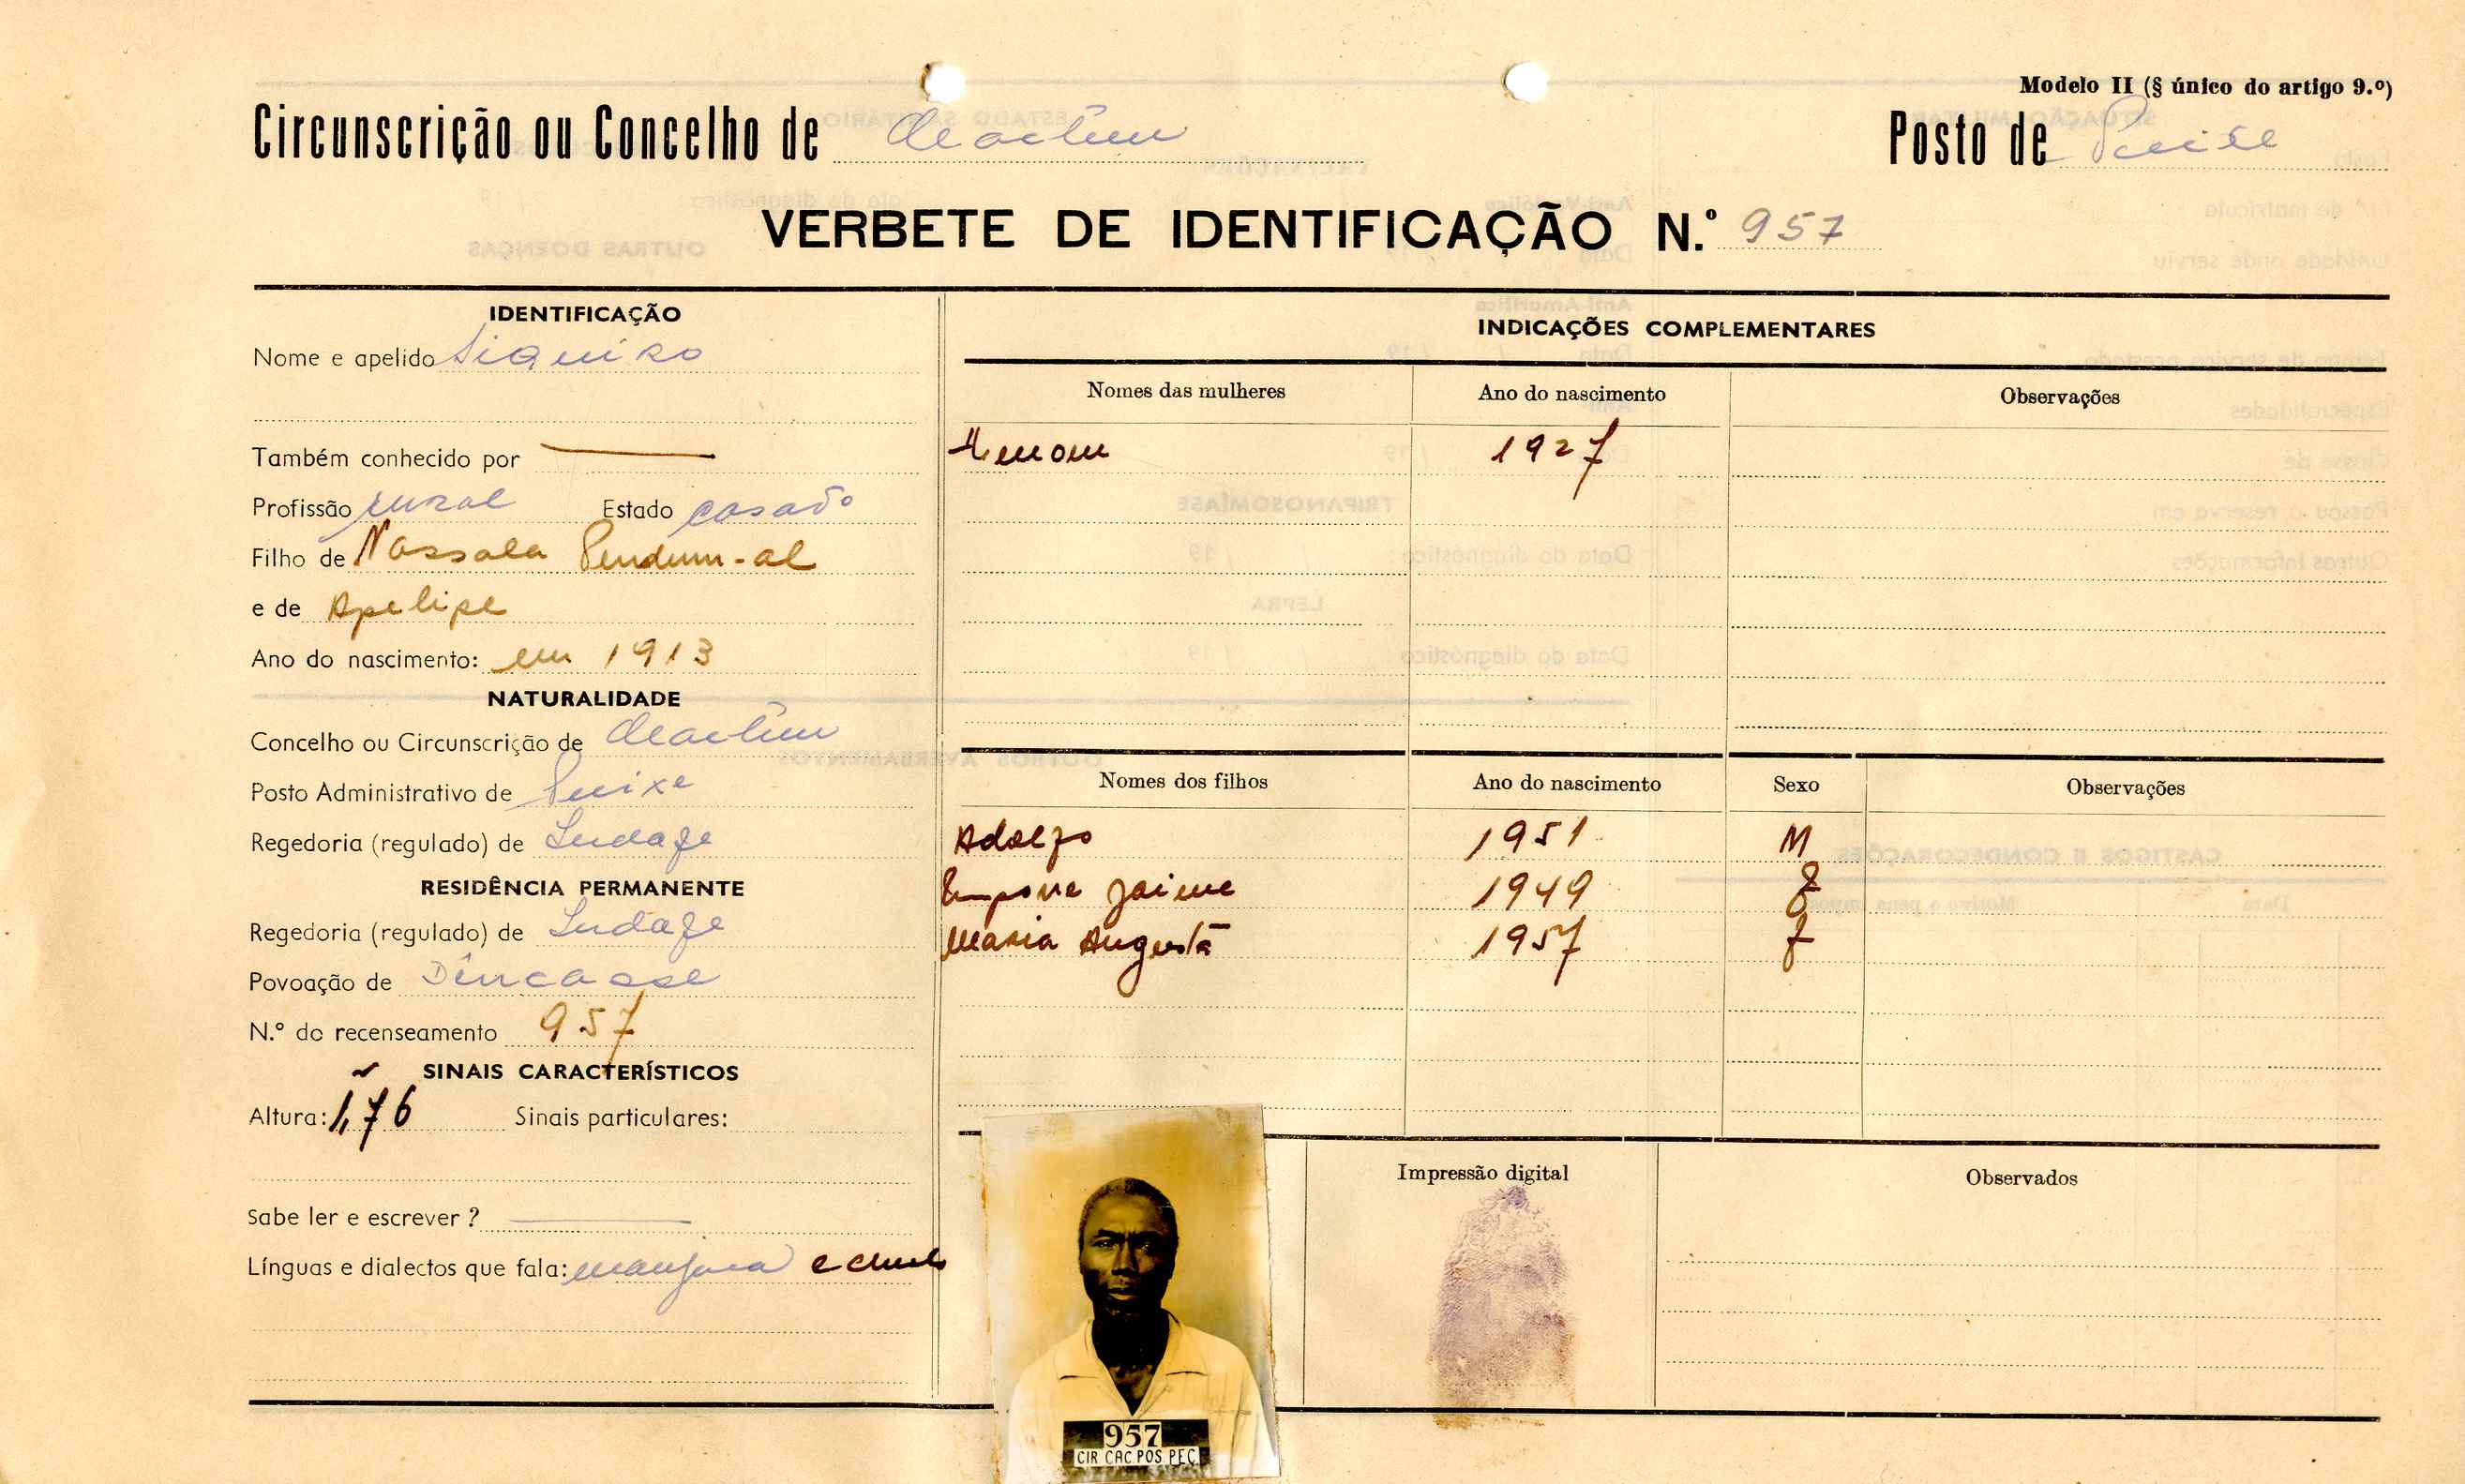 Modelo II (§ único do artigo 9.º)
Circunscrição ou Concelho de
Posto de
VERBETE DE IDENTIFICAÇÃO N.º 957
IDENTIFICAÇÃO
Nome e apelido
Também conhecido por
Profissão rural Estado casado
Filho de Nassala
e de Apelipe
Ano do nascimento: em 1913
NATURALIDADE
Concelho ou Circunscrição de
Posto Administrativo de
Regedoria (regulado) de
RESIDÊNCIA PERMANENTE
Regedoria (regulado) de
Povoação de
N.º do recenseamento 957
SINAIS CARACTERÍSTICOS
Altura: 1,76 Sinais particulares:
Sabe ler e escrever ?
Línguas e dialectos que fala: manjaca e
INDICAÇÕES COMPLEMENTARES
Nomes das mulheres Ano do nascimento Observações
1927
Nomes dos filhos Ano do nascimento Sexo Observações
Adolfo 1951 M
Jaime 1949 f
Maria Augusta 1957 f
Impressão digital
Observados
957
CIR CAC POS PEÇ